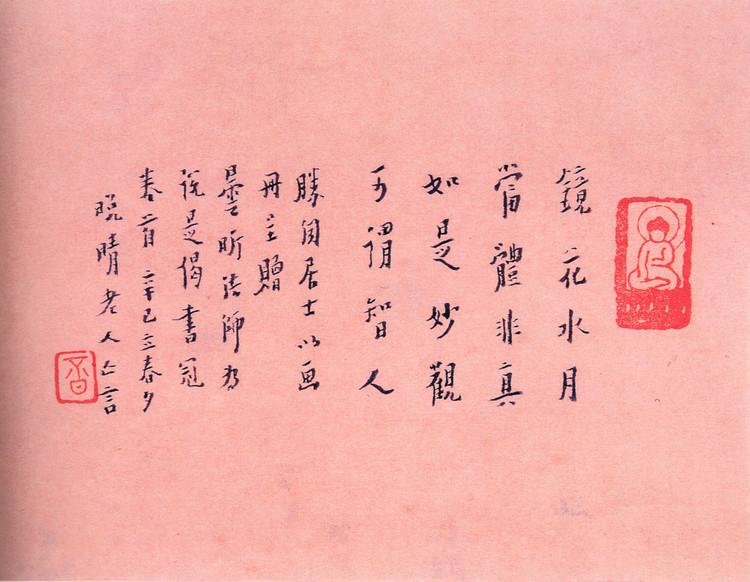 鏡花水月
當體非真
如是妙觀
可謂智人
勝居士以画
冊贈
曇昕法師為
說是偈書冠
卷首辛巳立春夕
晚晴老人亡言